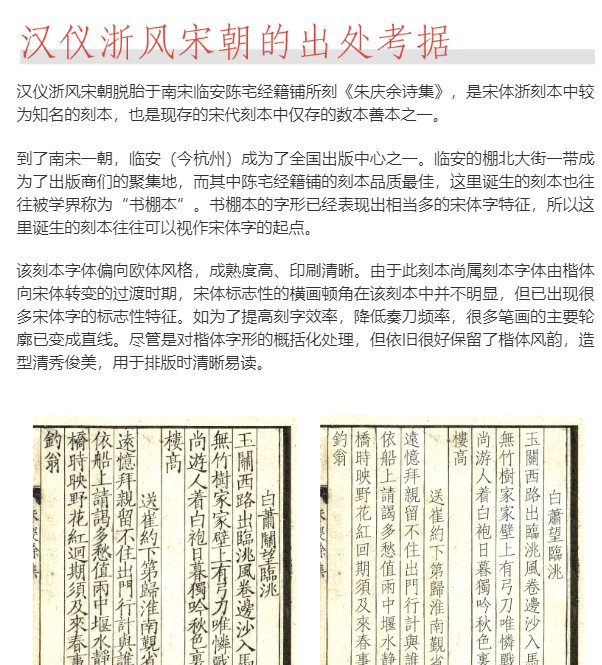 汉仪浙风宋朝的出处考据
汉仪浙风宋朝脱胎于南宋临安陈宅经籍铺所刻《朱庆余诗集》，是宋体浙刻本中较
为知名的刻本，也是现存的宋代刻本中仅存的数本善本之一。
到了南宋一朝，临安（今杭州）成为了全国出版中心之一。临安的棚北大街一带成
为了出版商们的聚集地，而其中陈宅经籍铺的刻本品质最佳，这里诞生的刻本也往
往被学界称为“书棚本”。书棚本的字形已经表现出相当多的宋体字特征，所以这
里诞生的刻本往往可以视作宋体字的起点。
该刻本字体偏向欧体风格，成熟度高、印刷清晰。由于此刻本尚属刻本字体由楷体
向宋体转变的过渡时期，宋体标志性的横画顿角在该刻本中并不明显，但已出现很
多宋体字的标志性特征。如为了提高刻字效率，降低奏刀频率，很多笔画的主要轮
廓已变成直线。尽管是对楷体字形的概括化处理，但依旧很好保留了楷体风韵，造
型清秀俊美，用于排版时清晰易读。
白蕭關望臨洮
玉關西路出臨洮風卷邊沙入馬
無竹樹家家壁上有弓刀唯憐戰
尚遊人着白袍日暮獨吟秋色裏
樓高
送崔約下第歸淮南覲省
遠憶拜親留不住出門行計與誰
依船上請謁多愁值雨中堰水靜
橋時映野花紅迴期須及來春事
釣翁
白蕭關望臨洮
玉關西路出臨洮風卷邊沙入馬
無竹樹家家壁上有弓刀唯憐戰
尚游人着白袍日暮獨吟秋色裏
樓高
送崔約下第歸淮南覲省
遠憶拜親留不住出門行計與誰
依船上請謁多愁值雨中堰水靜
橋時映野花紅回期須及來春事
釣翁